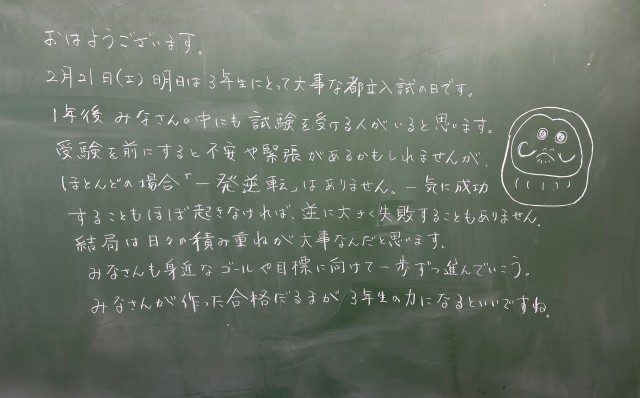 おはようございます。
2月21日(土) 明日は3年生にとって大事な都立入試の日です。
1年後 みなさんの中にも 試験を受ける人がいると思います。
受験を前にすると 不安や緊張があるかもしれませんが、
ほとんどの場合「一発逆転」はありません。一気に成功
することもほぼ起きなければ、逆に大きく失敗することもありません。
結局は日々の積み重ねが大事なんだと思います。
みなさんも身近なゴールや目標に向けて一歩ずつ進んでいこう。
みなさんが作った合格だるまが 3年生の力になるといいですね。